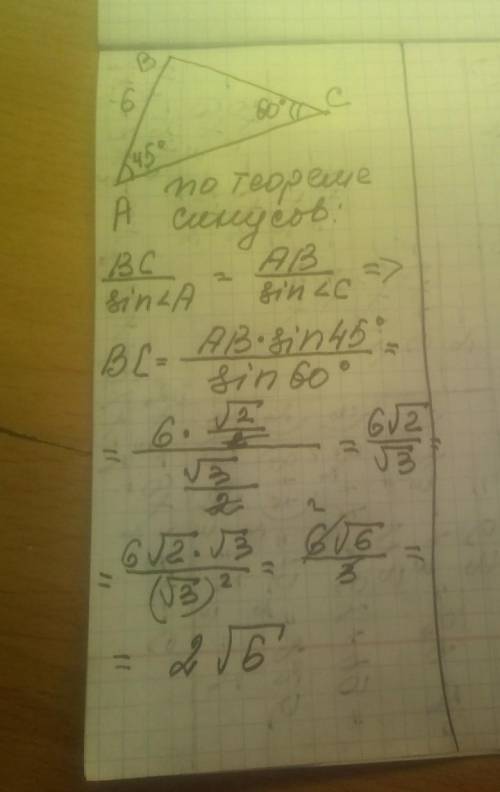 B
6
60° C
45°
A
по теореме
синусов:
BC/sin∠A = AB/sin∠C =>
BC = AB·sin45°/sin60° =
= 6·(√2/2)/(√3/2) = 6√2/√3 =
= 6√2·√3/(√3)² = 6√6/3 =
2
= 2√6